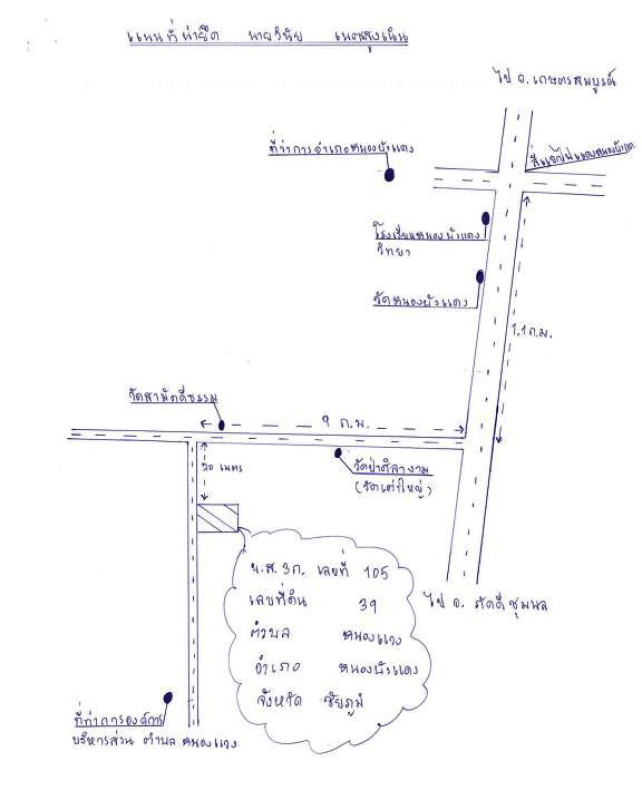 แผนที่นำยึด นายวินัย เนตสูงเนิน
ไป อ. เกษตรสมบูรณ์
ที่ว่าการอำเภอหนองบัวแดง
สี่แยกไฟแดงหนองบัวแดง
โรงเรียนหนองบัวแดง
วิทยา
วัดหนองบัวแดง
1.1 ก.ม.
วัดสามัคคีธรรม
9 ก.ม.
20 เมตร
วัดป่าศิลางาม
(วัดเต่าใหญ่)
น.ส. 3ก. เลขที่ 105
เลขที่ดิน 39
ตำบล หนองแวง
อำเภอ หนองบัวแดง
จังหวัด ชัยภูมิ
ไป อ. ภักดีชุมพล
ที่ทำการองค์การ
บริหารส่วน ตำบล หนองแวง